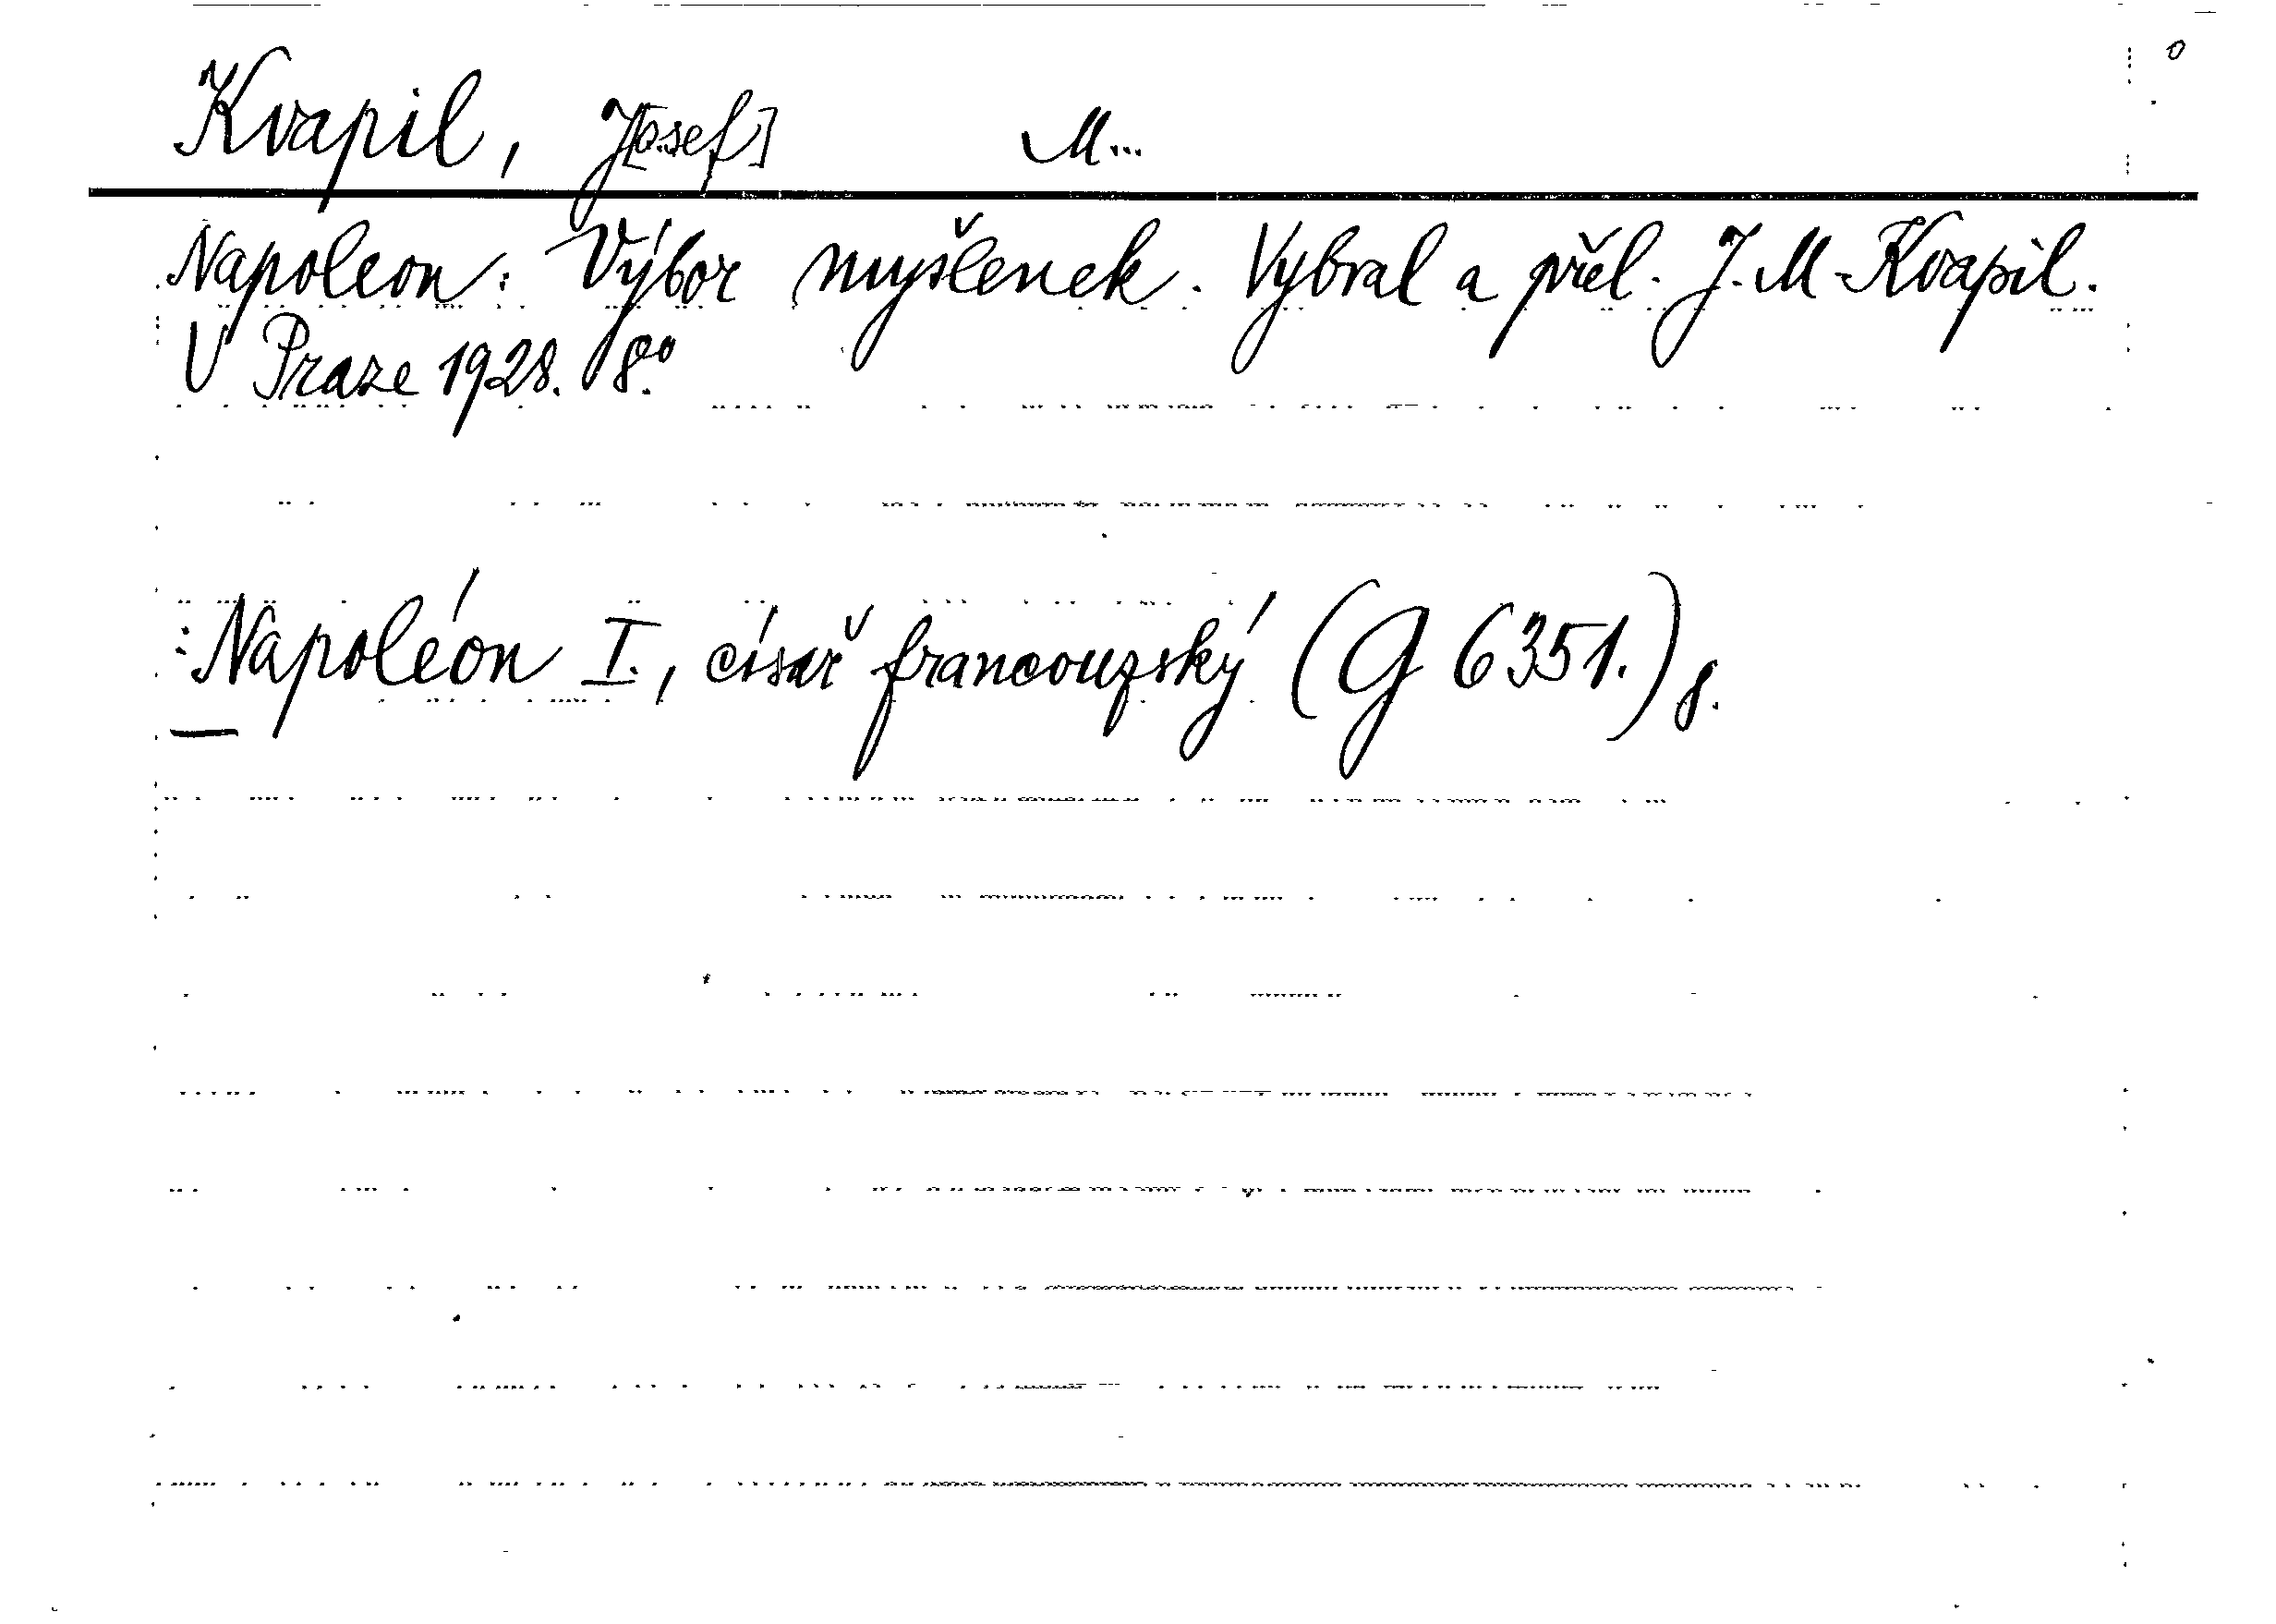 Kvapil, J[osef] M...
Napoleon: Výbor myšlenek. Vybral a přel. J. M. Kvapil.
V Praze 1928. 8.°
:Napoléon I., císař francouzský (G 6351.) 8.